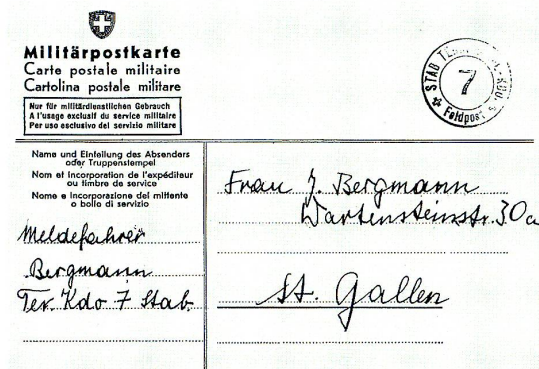 Militärpostkarte
Carte postale militaire
Cartolina postale militare
Nur für militärdienstlichen Gebrauch
A l'usage exclusif du service militaire
Per uso esclusivo del servizio militare
STAB TER.
7
Feldpost
Name und Einteilung des Absenders
oder Truppenstempel
Nom et Incorporation de l'expéditeur
ou timbre de service
Nome e Incorporazione del mittente
o bollo di servizio
Meldefahrer
Bergmann
Ter. Kdo 7 Stab
Frau J. Bergmann
Wartensteinstr. 30a
St. Gallen